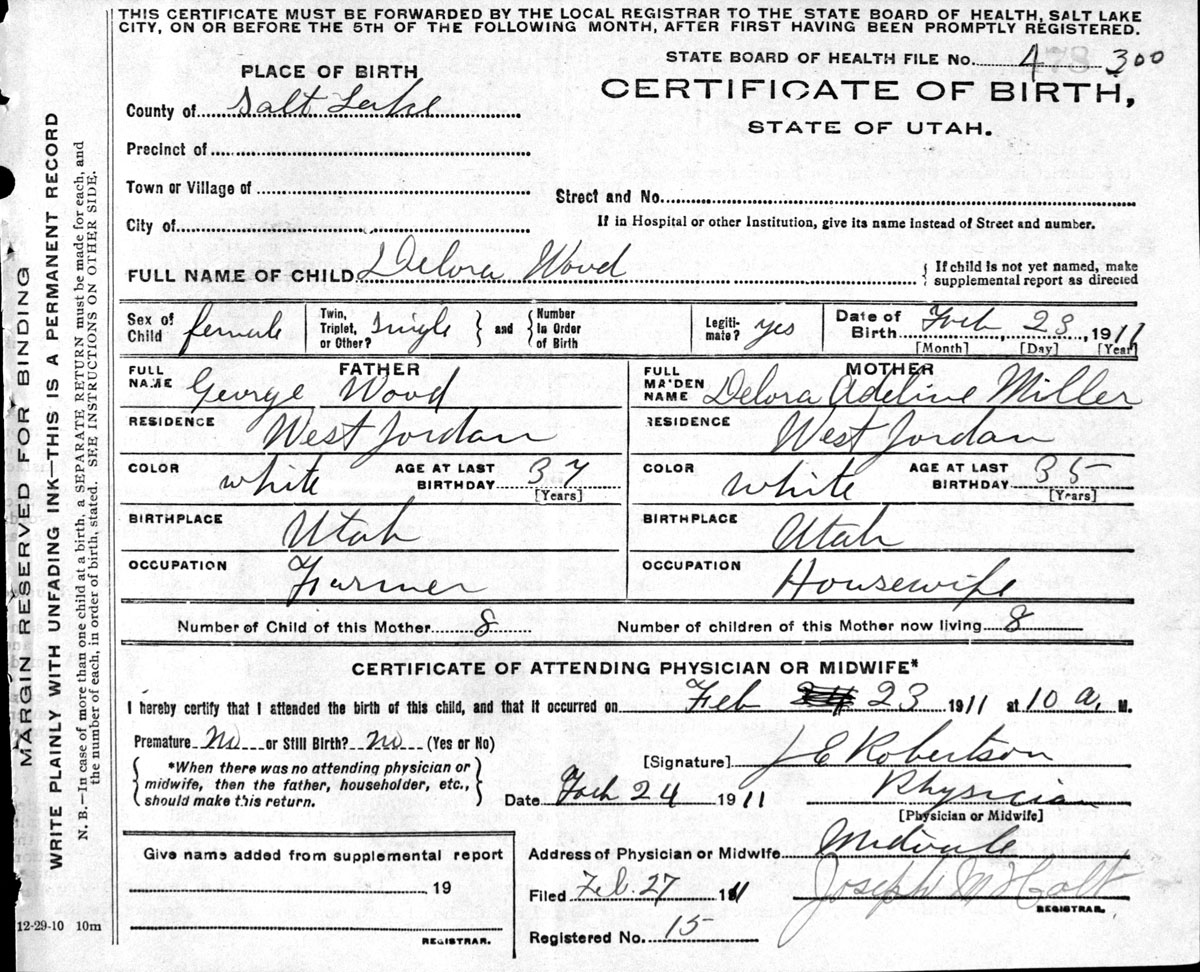 THIS CERTIFICATE MUST BE FORWARDED BY THE LOCAL REGISTRAR TO THE STATE BOARD OF HEALTH, SALT LAKE
CITY, ON OR BEFORE THE 5TH OF THE FOLLOWING MONTH, AFTER FIRST HAVING BEEN PROMPTLY REGISTERED.
STATE BOARD OF HEALTH FILE No. 478 300
PLACE OF BIRTH
CERTIFICATE OF BIRTH,
STATE OF UTAH.
County of Salt Lake
Precinct of
Town or Village of
Street and No.
City of
If in Hospital or other Institution, give its name instead of Street and number.
FULL NAME OF CHILD Delora Wood
{ If child is not yet named, make
supplemental report as directed
Sex of Child female
Twin, Triplet, or Other? single } and { Number In Order of Birth
Legitimate? yes
Date of Birth Feb 23, 1911
[Month] [Day] [Year]
FATHER
FULL NAME George Wood
RESIDENCE West Jordan
COLOR white AGE AT LAST BIRTHDAY 37 [Years]
BIRTHPLACE Utah
OCCUPATION Farmer
MOTHER
FULL MAIDEN NAME Delora Adeline Miller
RESIDENCE West Jordan
COLOR white AGE AT LAST BIRTHDAY 35 [Years]
BIRTHPLACE Utah
OCCUPATION Housewife
Number of Child of this Mother 8 Number of children of this Mother now living 8
CERTIFICATE OF ATTENDING PHYSICIAN OR MIDWIFE*
I hereby certify that I attended the birth of this child, and that it occurred on Feb 23 1911 at 10 a. M.
Premature No or Still Birth? No (Yes or No)
{ *When there was no attending physician or
midwife, then the father, householder, etc.,
should make this return. }
[Signature] J E Robertson
Date Feb 24 1911 Physician
[Physician or Midwife]
Give name added from supplemental report
19
REGISTRAR.
Address of Physician or Midwife Midvale
Filed Feb. 27 1911 Joseph M Holt
REGISTRAR.
Registered No. 15
12-29-10 10m
MARGIN RESERVED FOR BINDING
WRITE PLAINLY WITH UNFADING INK—THIS IS A PERMANENT RECORD
N. B.—In case of more than one child at a birth, a SEPARATE RETURN must be made for each, and
the number of each, in order of birth, stated. SEE INSTRUCTIONS ON OTHER SIDE.